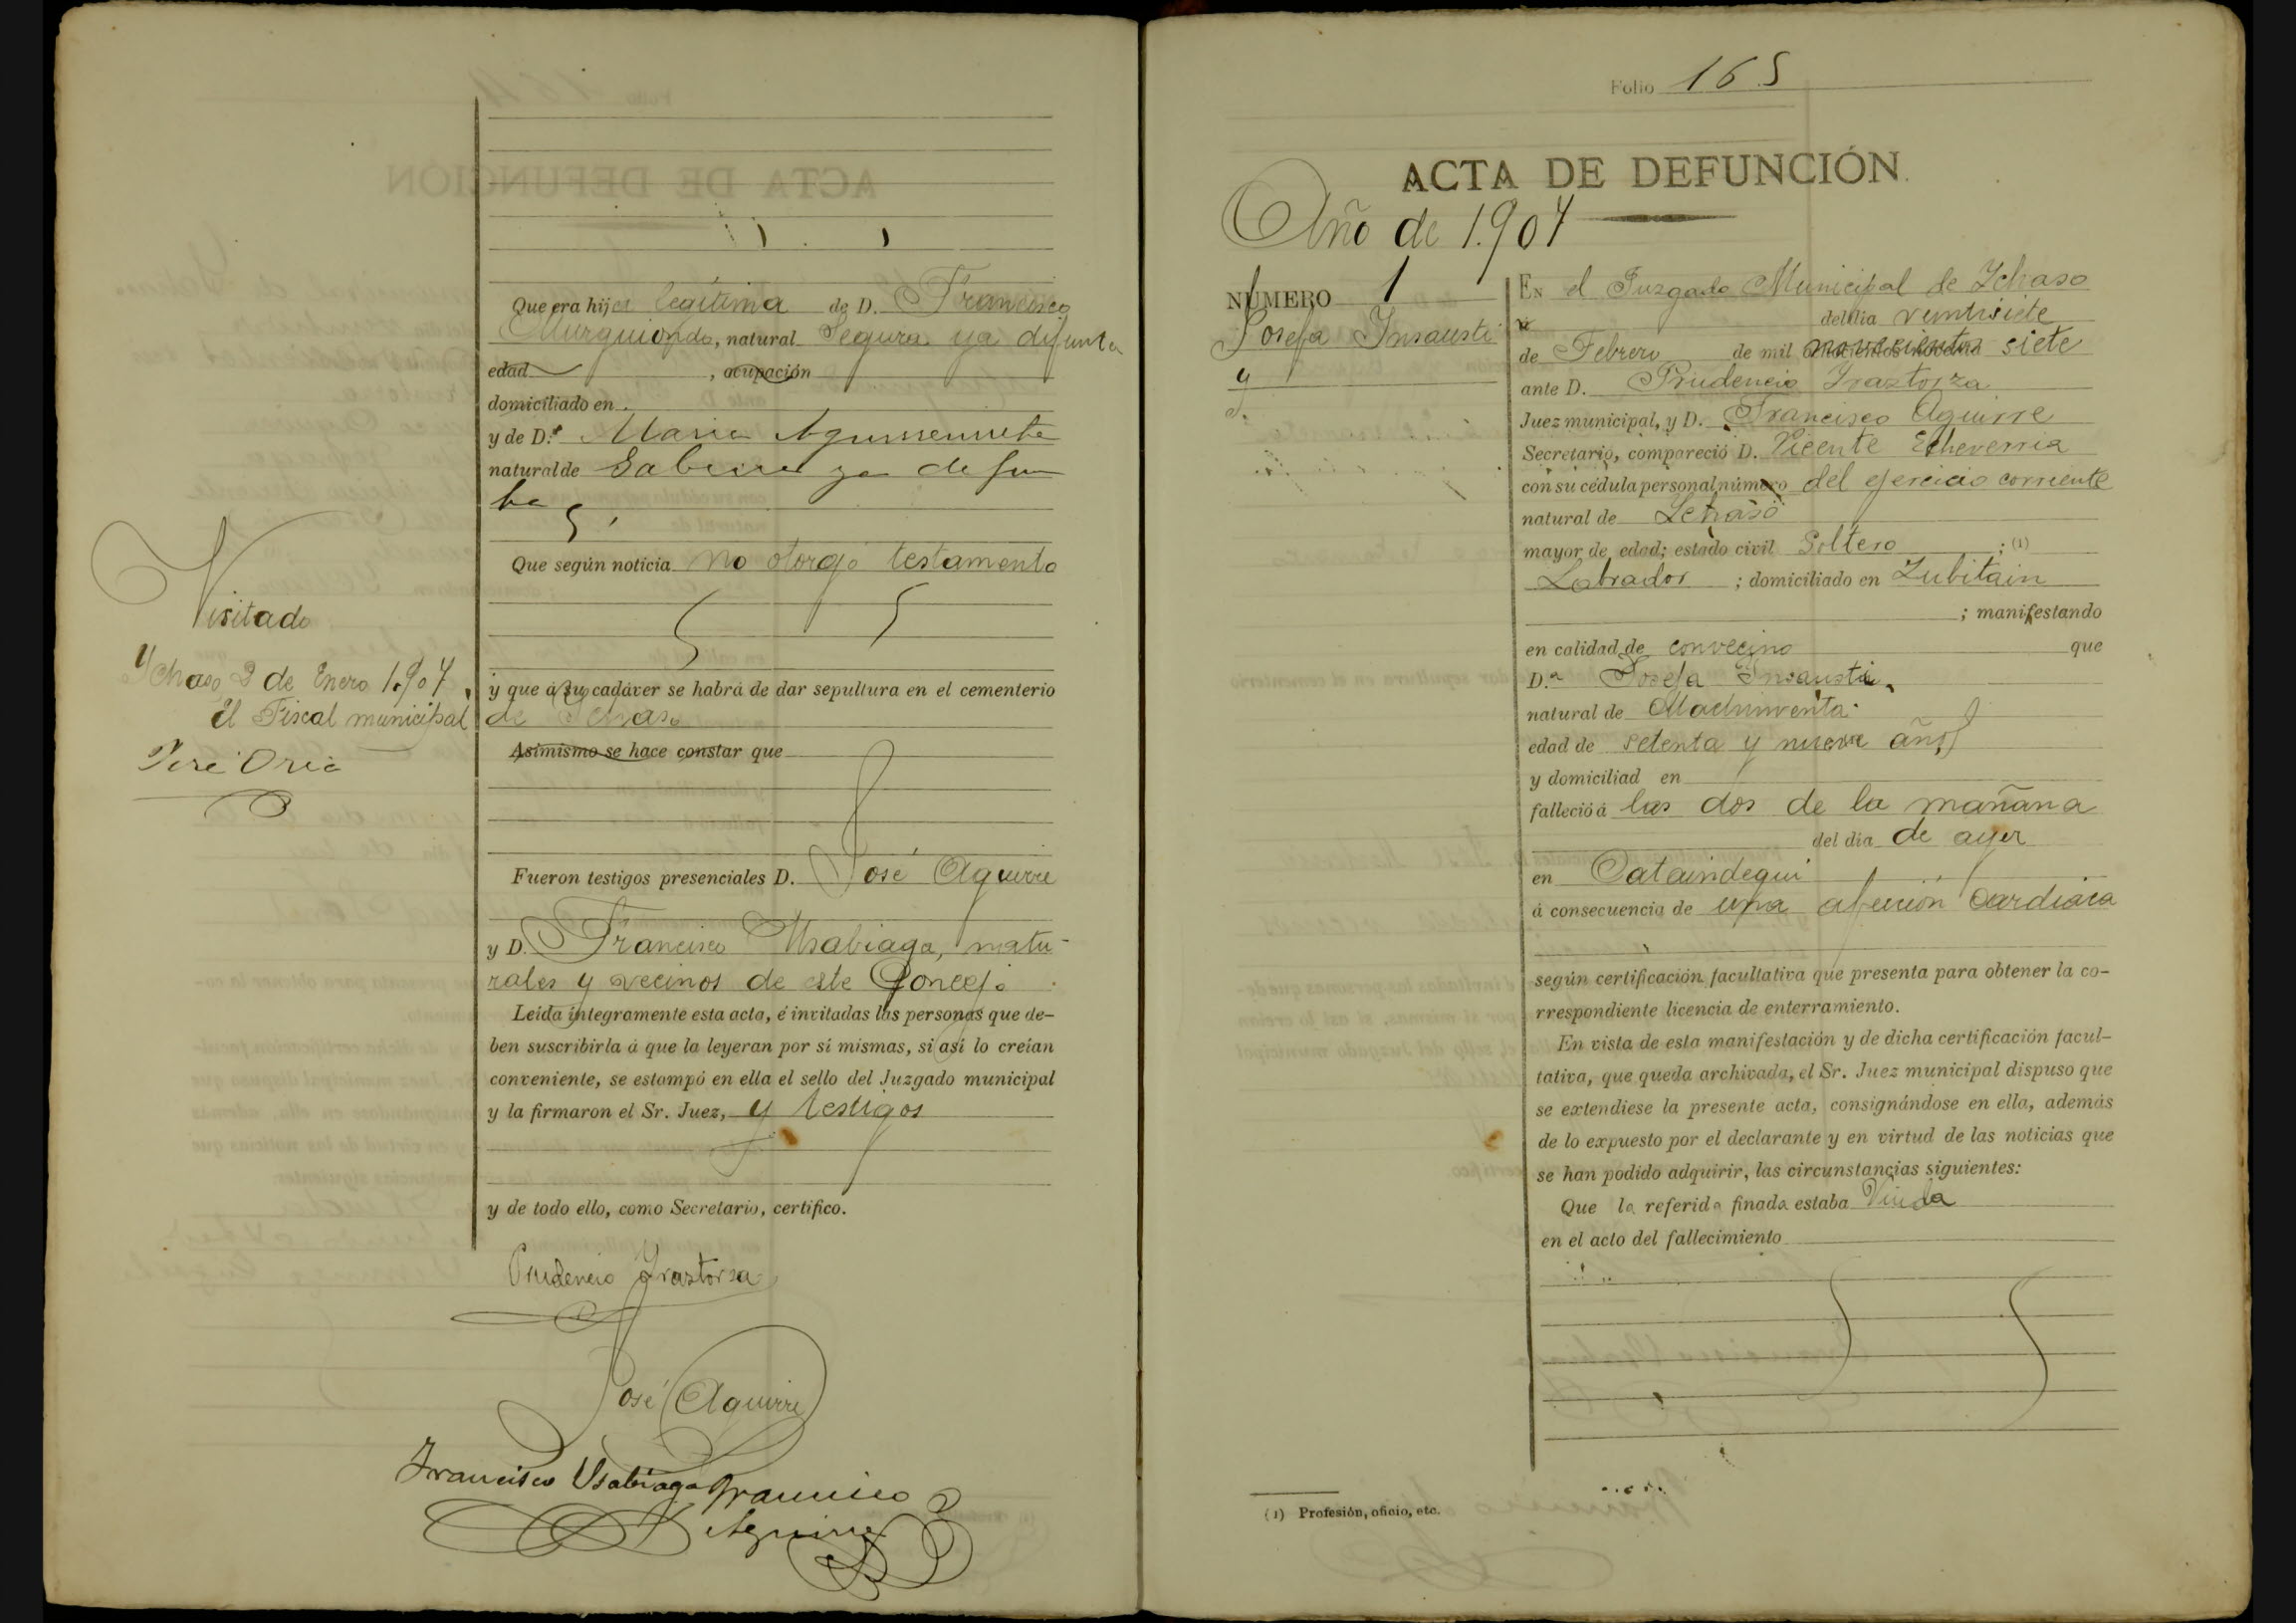 Que era hija legítima de D. Francisco
Murguiondo, natural Segura ya difunta
edad , ocupación
domiciliado en
y de D.ª Maria
natural de Gabiria ya defun
ta
Que según noticia no otorgó testamento
y que á su cadáver se habrá de dar sepultura en el cementerio
de Ichaso
Asimismo se hace constar que
Fueron testigos presenciales D. José Aguirre
y D. Francisco Usabiaga, natu-
rales y vecinos de este Concejo
Leída íntegramente esta acta, é invitadas las personas que de-
ben suscribirla á que la leyeran por sí mismas, si así lo creían
conveniente, se estampó en ella el sello del Juzgado municipal
y la firmaron el Sr. Juez, y testigos
y de todo ello, como Secretario, certifico.
Prudencio Yraztorza
José Aguirre
Francisco Usabiaga Francisco
Aguirre
Visitado
Ychaso 2 de Enero 1.907
El Fiscal municipal
Oria
Folio 165
ACTA DE DEFUNCIÓN
Año de 1.907
NÚMERO 1
Josefa Insausti
y
En el Juzgado Municipal de Ichaso
del día ventisiete
de Febrero de mil novecientos siete
ante D. Prudencio Iraztorza
Juez municipal, y D. Francisco Aguirre
Secretario, compareció D. Vicente Echeverria
con su cédula personal número del ejercicio corriente
natural de Ichaso
mayor de edad; estado civil Soltero ; (1)
Labrador ; domiciliado en Zubitain
; manifestando
en calidad de convecino que
D.ª Josefa Insausti,
natural de
edad de setenta y nueve años
y domiciliad en
falleció á las dos de la mañana
del día de ayer
en Oataindegui
á consecuencia de una afección cardiaca
según certificación facultativa que presenta para obtener la co-
rrespondiente licencia de enterramiento.
En vista de esta manifestación y de dicha certificación facul-
tativa, que queda archivada, el Sr. Juez municipal dispuso que
se extendiese la presente acta, consignándose en ella, además
de lo expuesto por el declarante y en virtud de las noticias que
se han podido adquirir, las circunstancias siguientes:
Que la referida finada estaba Viuda
en el acto del fallecimiento
(1) Profesión, oficio, etc.